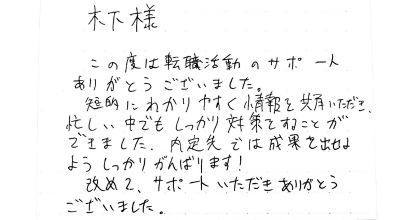 木下様
この度は転職活動のサポート
ありがとうございました。
短的にわかりやすく情報を共有いただき、
忙しい中でもしっかり対策をすることが
できました。内定先では成果を出せる
ようしっかりがんばります!
改めて、サポートいただきありがとう
ございました。